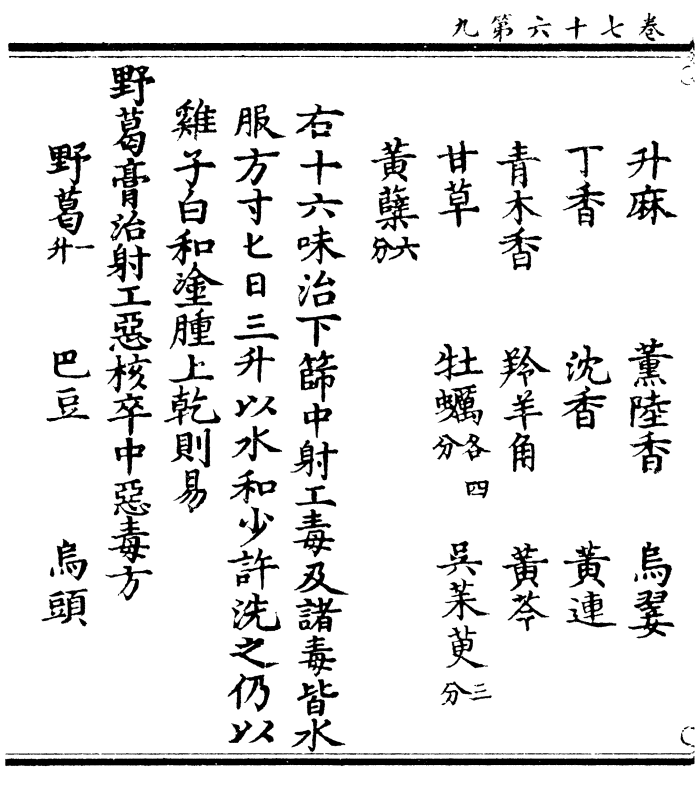 卷七十六第九
升麻 薰陸香 烏翣
丁香 沈香 黃連
青木香 羚羊角 黃芩
甘草 牡蠣各四分 吳茱萸三分
黃蘗六分
右十六味治下篩中射工毒及諸毒皆水
服方寸匕日三升以水和少許洗之仍以
雞子白和塗腫上乾則易
野葛膏治射工惡核卒中惡毒方
野葛一升 巴豆 烏頭